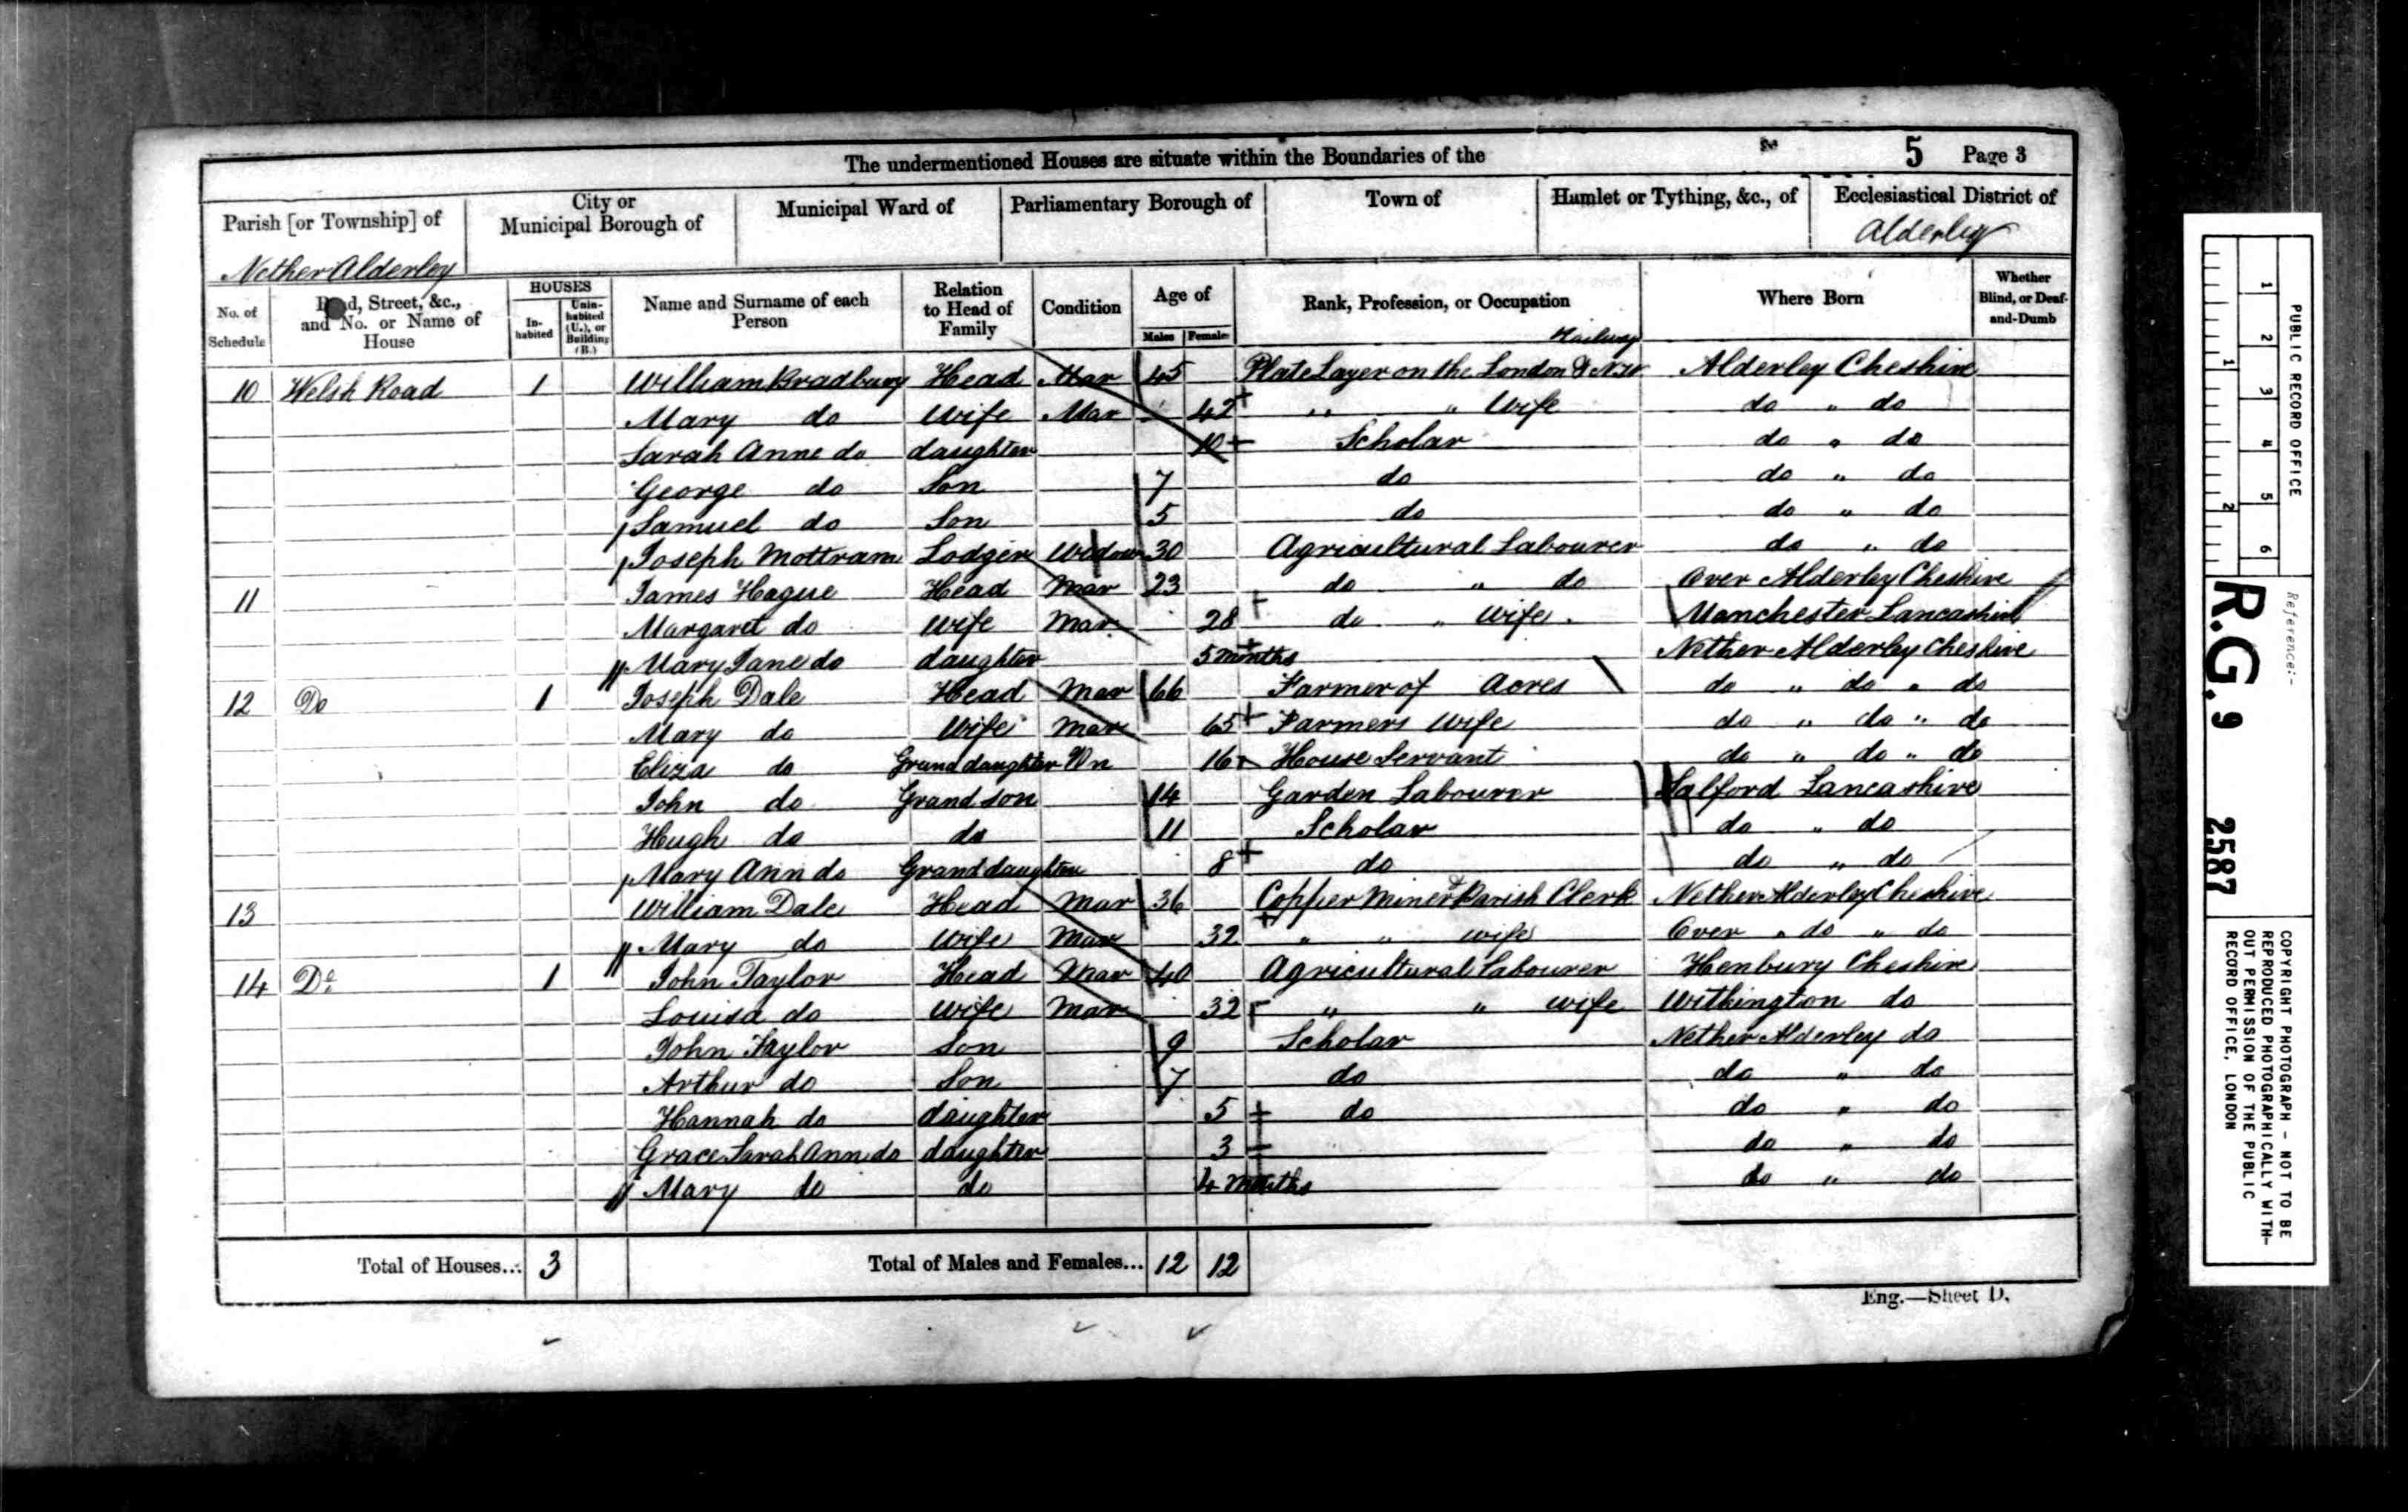 The undermentioned Houses are situate within the Boundaries of the
5 Page 3
Parish [or Township] of
City or Municipal Borough of
Municipal Ward of
Parliamentary Borough of
Town of
Hamlet or Tything, &c., of
Ecclesiastical District of
Nether Alderley
Alderley
No. of Schedule
Road, Street, &c., and No. or Name of House
HOUSES
In-habited
Unin-habited (U.), or Building (B.)
Name and Surname of each Person
Relation to Head of Family
Condition
Age of
Males
Females
Rank, Profession, or Occupation
Where Born
Whether Blind, or Deaf-and-Dumb
Railway
10 Welsh Road 1 William Bradbury Head Mar 45 Plate Layer on the London & N.W. Alderley Cheshire
Mary do Wife Mar 42 " " Wife do " do
Sarah Anne do daughter 10 Scholar do " do
George do Son 7 do do " do
Samuel do Son 5 do do " do
Joseph Mottram Lodger Widower 30 Agricultural Labourer do " do
11 James Hague Head Mar 23 do " do Over Alderley Cheshire
Margaret do Wife Mar 28 do " Wife Manchester Lancashire
Mary Jane do daughter 5 months Nether Alderley Cheshire
12 Do 1 Joseph Dale Head Mar 66 Farmer of Acres do " do " do
Mary do Wife Mar 65 Farmers Wife do " do " do
Eliza do Grand daughter Un 16 House Servant do " do " do
John do Grand son 14 Garden Labourer Salford Lancashire
Hugh do do 11 Scholar do " do
Mary Ann do Grand daughter 8 do do " do
13 William Dale Head Mar 36 Copper Miner & Parish Clerk Nether Alderley Cheshire
Mary do Wife Mar 32 " " wife Over " do " do
14 Do 1 John Taylor Head Mar 40 Agricultural Labourer Henbury Cheshire
Louisa do Wife Mar 32 " " wife Withington do
John Taylor Son 9 Scholar Nether Alderley do
Arthur do Son 7 do do " do
Hannah do daughter 5 do do " do
Grace Sarah Ann do daughter 3 do " do
Mary do do 4 Months do " do
Total of Houses... 3
Total of Males and Females... 12 12
Eng.—Sheet D.
PUBLIC RECORD OFFICE
1 2 3 4 5 6
1 2
Reference:-
R.G. 9 2587
COPYRIGHT PHOTOGRAPH - NOT TO BE
REPRODUCED PHOTOGRAPHICALLY WITH-
OUT PERMISSION OF THE PUBLIC
RECORD OFFICE, LONDON